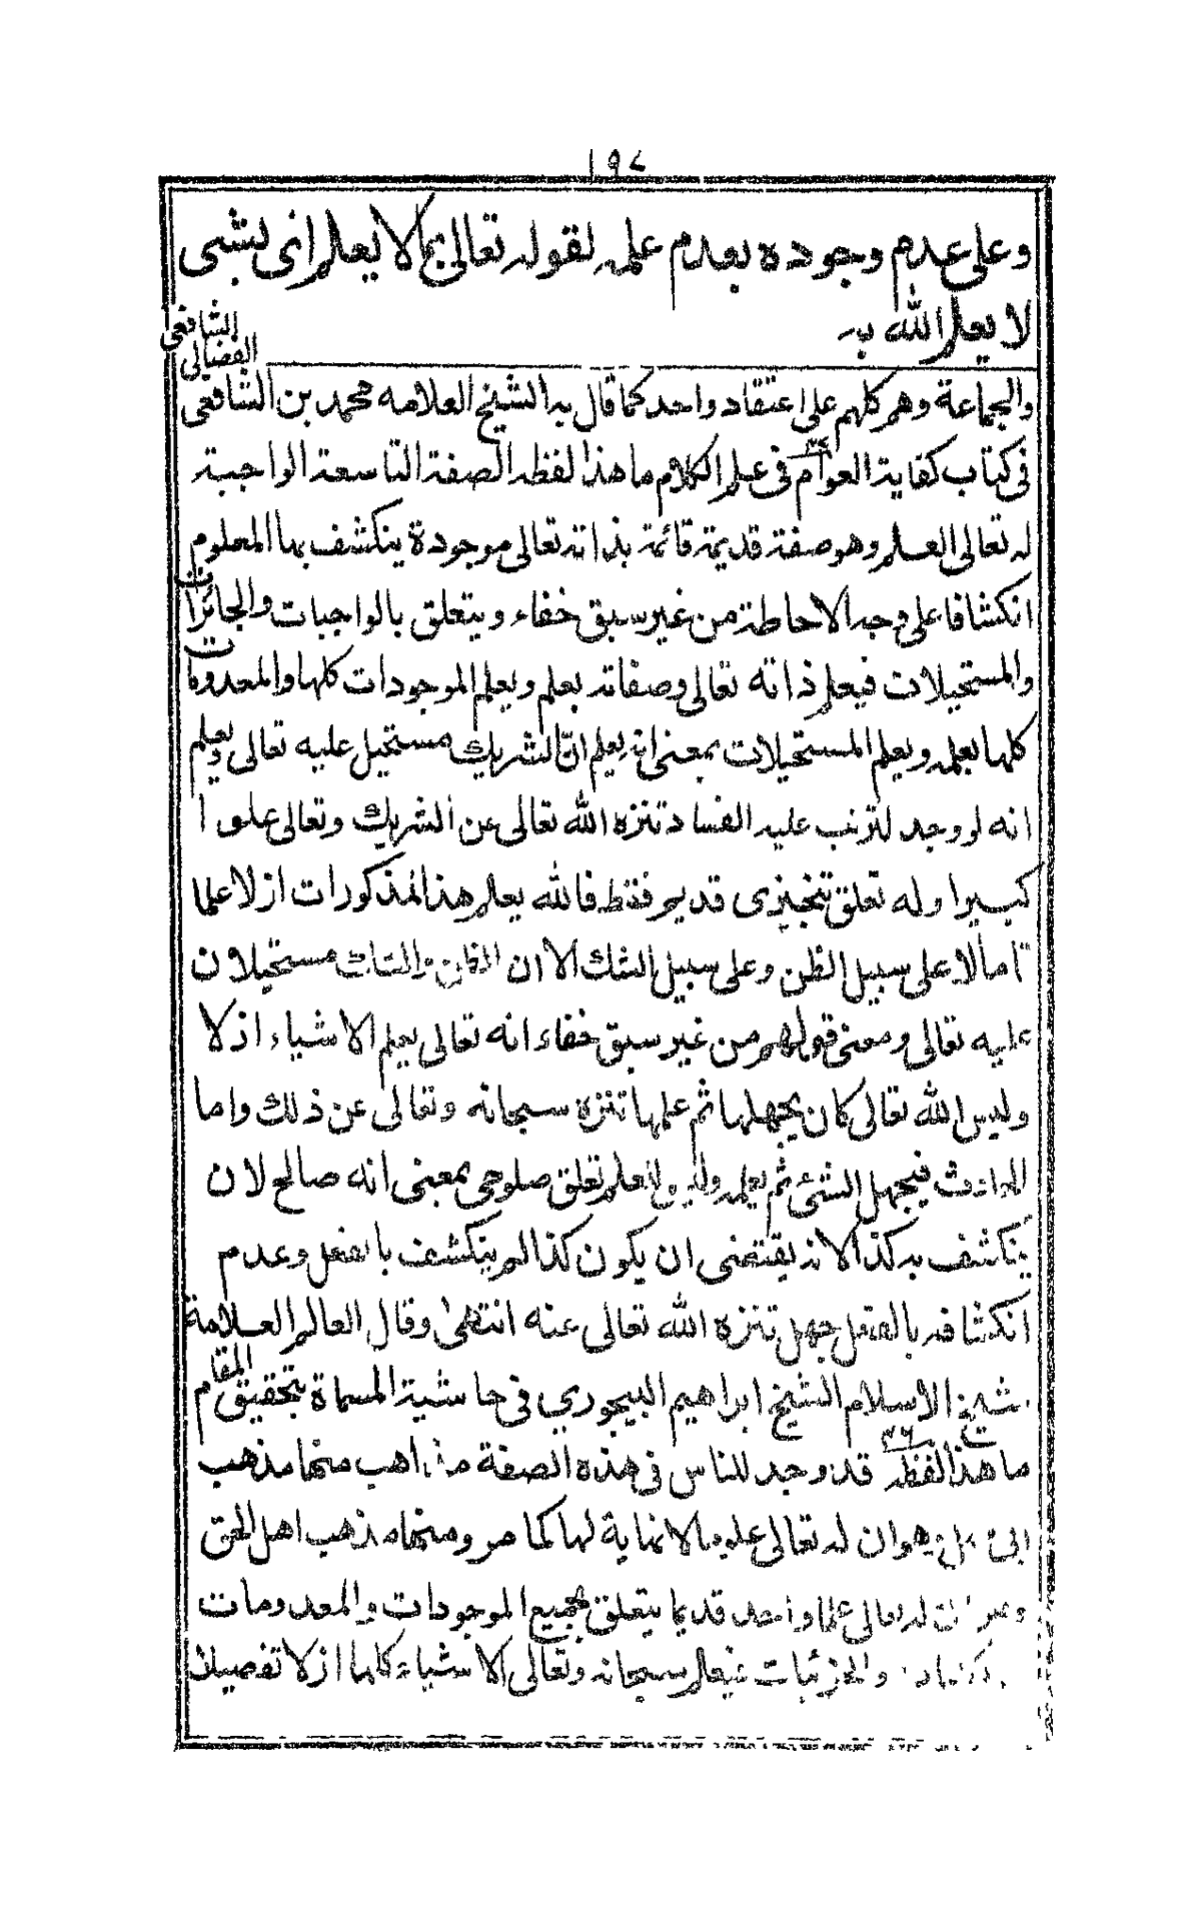 ١٩٨
وعلى عدم وجوده بعدم علمه لقوله تعالى بما لا يعلم اى بشىء
لا يعلم الله به
والجماعة وهم كلهم على اعتقاد واحد كما قال به الشيخ العلامه محمد بن الشافعى الفضالى الشافعى
فى كتاب كفاية العوام فى علم الكلام ما هذا لفظه الصفة التاسعة الواجبة
له تعالى العلم وهو صفة قديمة قائمة بذاته تعالى موجودة ينكشف بها المعلوم
انكشافا على وجه الاحاطة من غير سبق خفاء ويتعلق بالواجبات والجائزات
والمستحيلات فيعلم ذاته تعالى وصفاته بعلم ويعلم الموجودات كلها والمعدومات
كلها بعلمه ويعلم المستحيلات بمعنى انه يعلم انّ الشريك مستحيل عليه تعالى ويعلم
انه لو وجد لترتب عليه الفساد تنزه الله تعالى عن الشريك وتعالى علوا
كبيرا وله تعلق تنجيزى قديم فقط فالله يعلم هذا المذكورات ازلا علما
تاما لا على سبيل الظن وعلى سبيل الشك لان الظن والشك مستحيلان
عليه تعالى ومعنى قولهم من غير سبق خفاء انه تعالى يعلم الاشياء ازلا
وليس الله تعالى كان يجهلها ثم علمها تنزه سبحانه وتعالى عن ذلك واما
الحادث فيجهل الشئ ثم يعلمه وليس للعلم تعلق صلوحى بمعنى انه صالح لان
ينكشف به كذا لانه يقتضى ان يكون كذا لم ينكشف بالفعل وعدم
انكشافه بالفعل جهل تنزه الله تعالى عنه انتهى وقال العالم العلامة
شيخ الاسلام الشيخ ابراهيم البيجوري فى حاشية المسماة بتحقيق المقام
ما هذا لفظه قد وجد للناس فى هذه الصفة مذاهب منها مذهب
ابى سهل وهو ان له تعالى علوما لا نهاية لها كما مر ومنها مذهب اهل الحق
وهو ان له تعالى علما واحد قديما يتعلق بجميع الموجودات والمعدومات
والجزئيات فيعلم سبحانه وتعالى الاشياء كلها ازلا تفصيلا